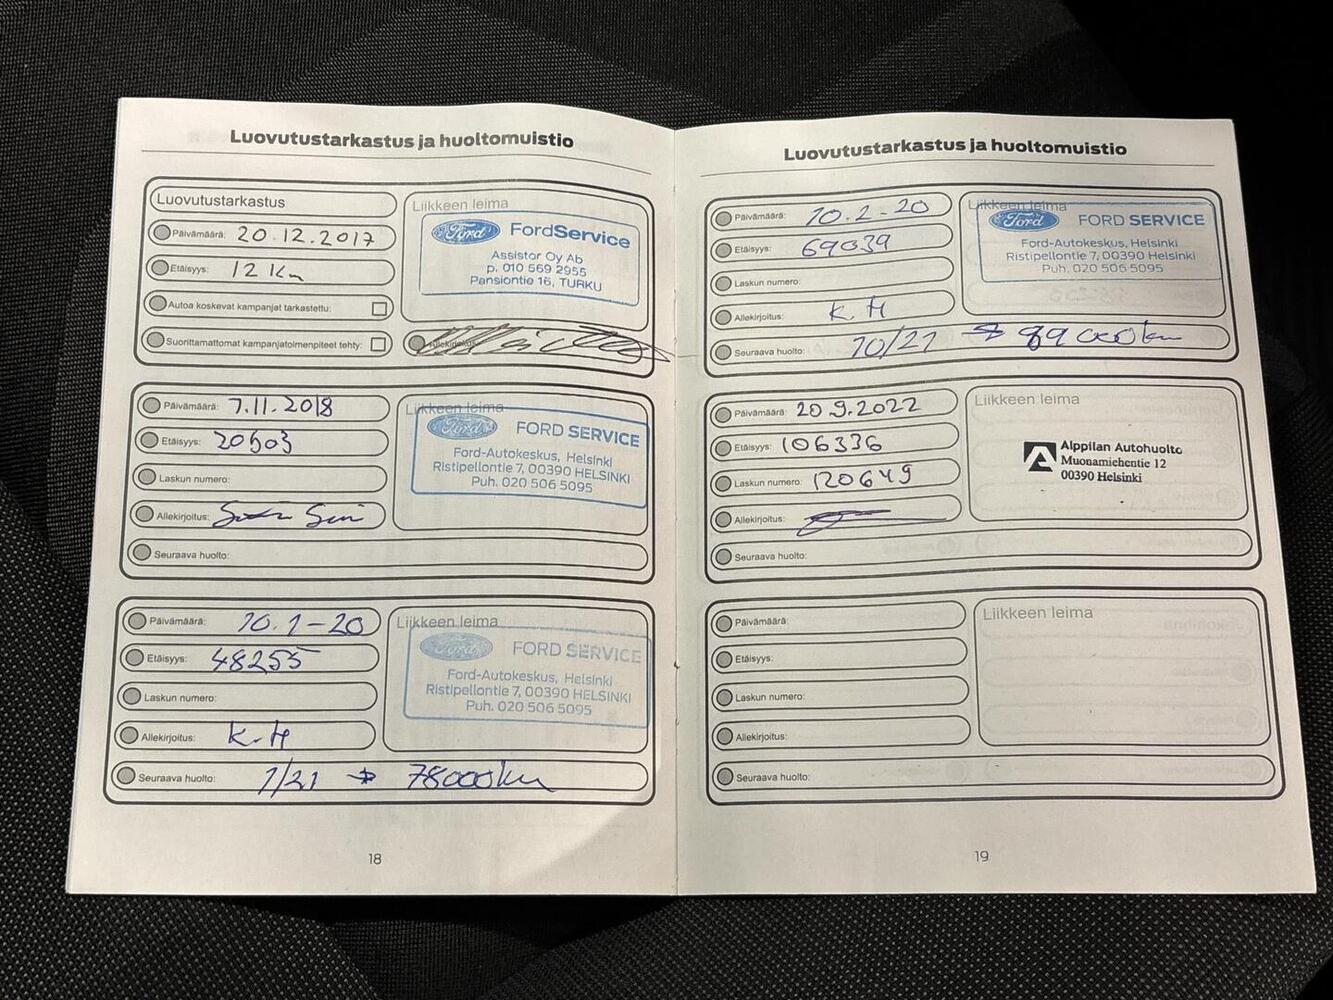 Luovutustarkastus ja huoltomuistio
Luovutustarkastus
Päivämäärä: 20.12.2017
Etäisyys: 12 Km
Autoa koskevat kampanjat tarkastettu:
Suorittamattomat kampanjatoimenpiteet tehty:
Liikkeen leima
Ford FordService
Assistor Oy Ab
p. 010 569 2955
Pansiontie 16, TURKU
Allekirjoitus:
Päivämäärä: 7.11.2018
Etäisyys: 20503
Laskun numero:
Allekirjoitus:
Seuraava huolto:
Liikkeen leima
Ford FORD SERVICE
Ford-Autokeskus, Helsinki
Ristipellontie 7, 00390 HELSINKI
Puh. 020 506 5095
Päivämäärä: 10.1-20
Etäisyys: 48255
Laskun numero:
Allekirjoitus: K.H
Seuraava huolto: 1/21 → 78000km
Liikkeen leima
Ford FORD SERVICE
Ford-Autokeskus, Helsinki
Ristipellontie 7, 00390 HELSINKI
Puh. 020 506 5095
18
Luovutustarkastus ja huoltomuistio
Päivämäärä: 10.2-20
Etäisyys: 69039
Laskun numero:
Allekirjoitus: K.H
Seuraava huolto: 10/21 → 99000km
Liikkeen leima
Ford FORD SERVICE
Ford-Autokeskus, Helsinki
Ristipellontie 7, 00390 Helsinki
Puh. 020 506 5095
Päivämäärä: 20.9.2022
Etäisyys: 106336
Laskun numero: 120649
Allekirjoitus:
Seuraava huolto:
Liikkeen leima
Alppilan Autohuolto
Muonamiehentie 12
00390 Helsinki
Päivämäärä:
Etäisyys:
Laskun numero:
Allekirjoitus:
Seuraava huolto:
Liikkeen leima
19